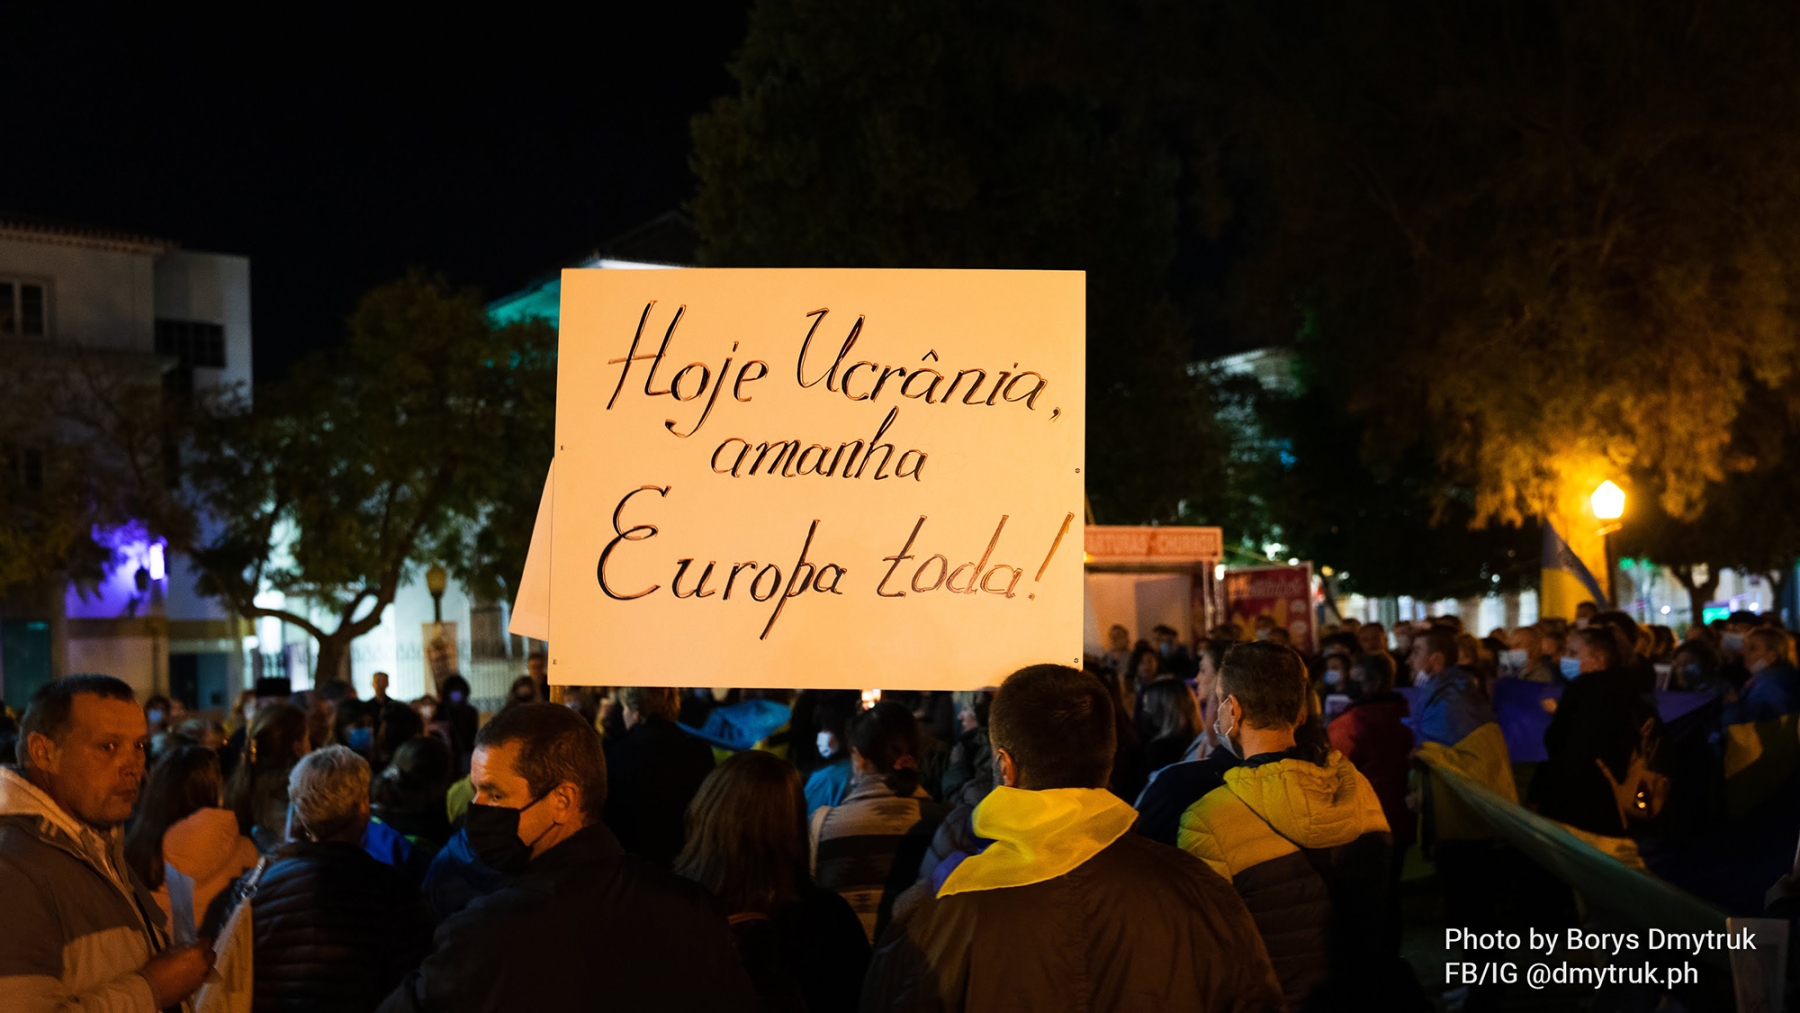 Hoje Ucrânia,
amanha
Europa toda!
Photo by Borys Dmytruk
FB/IG @dmytruk.ph